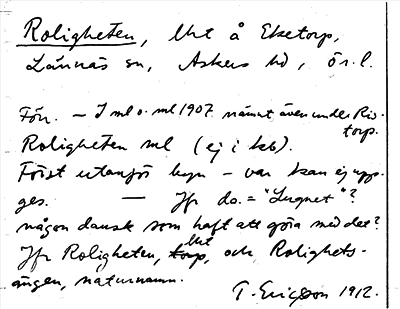 Roligheten, lht å Eketorp,
Lännäs sn, Askers hd, ör. l.
Förr. – I ml o. ml 1907. nämnt även under Ris-
torp.
Roligheten ml (ej i kb).
Först utanför byn – var kan ej upp-
ges. — Jfr da. = "Lugnet"?
någon dansk som haft att göra med det?
Jfr Roligheten, lht, och Rolighets-
ängen, naturnamn.
T. Ericsson 1912.